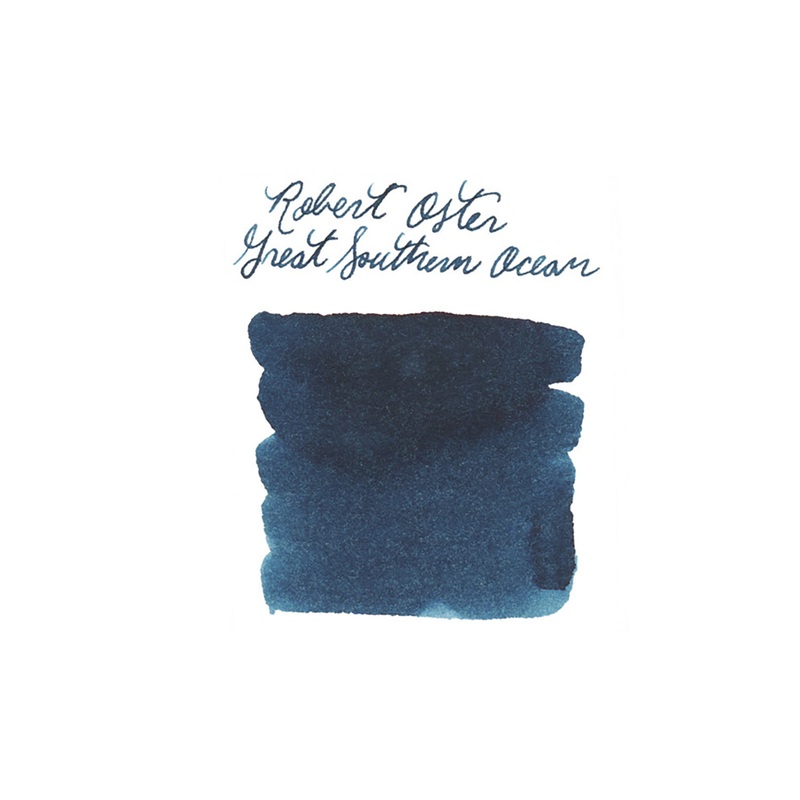 Robert Oster
Great Southern Ocean